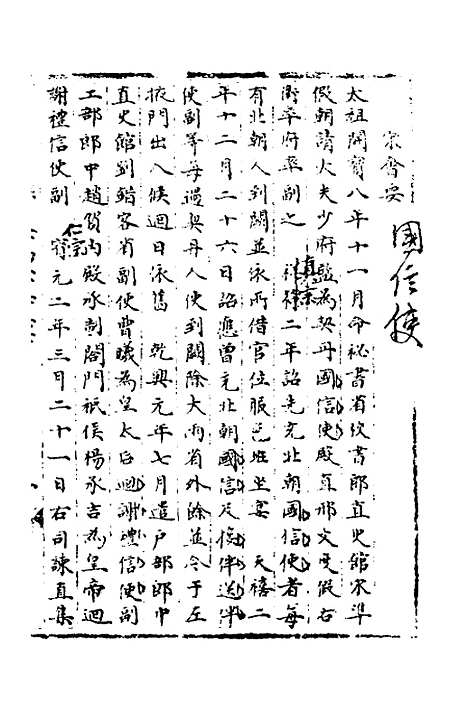 宋會要
國信使
太祖開寶八年十一月命祕書省校書郎直史館宋準
假朝請大夫少府監為契丹國信使殿直邢文度假右
衛率府率副之 祥符二年詔先充北朝國信使者每
真宗
有北朝人到闕並依所借官位服色班坐宴 天禧二
年十二月二十六日詔應曾充北朝國信及館伴送伴
使副等每遇契丹人使到闕除大兩省外餘並令于左
掖門出入候迴日依舊 乾興元年七月遣戶部郎中
直史館劉鍇客省副使曹曦為皇太后迴謝禮信使副
工部郎中趙賀內殿承制閤門祗候楊承吉為皇帝迴
謝禮信使副 寶元二年三月二十一日右司諫直集
仁宗